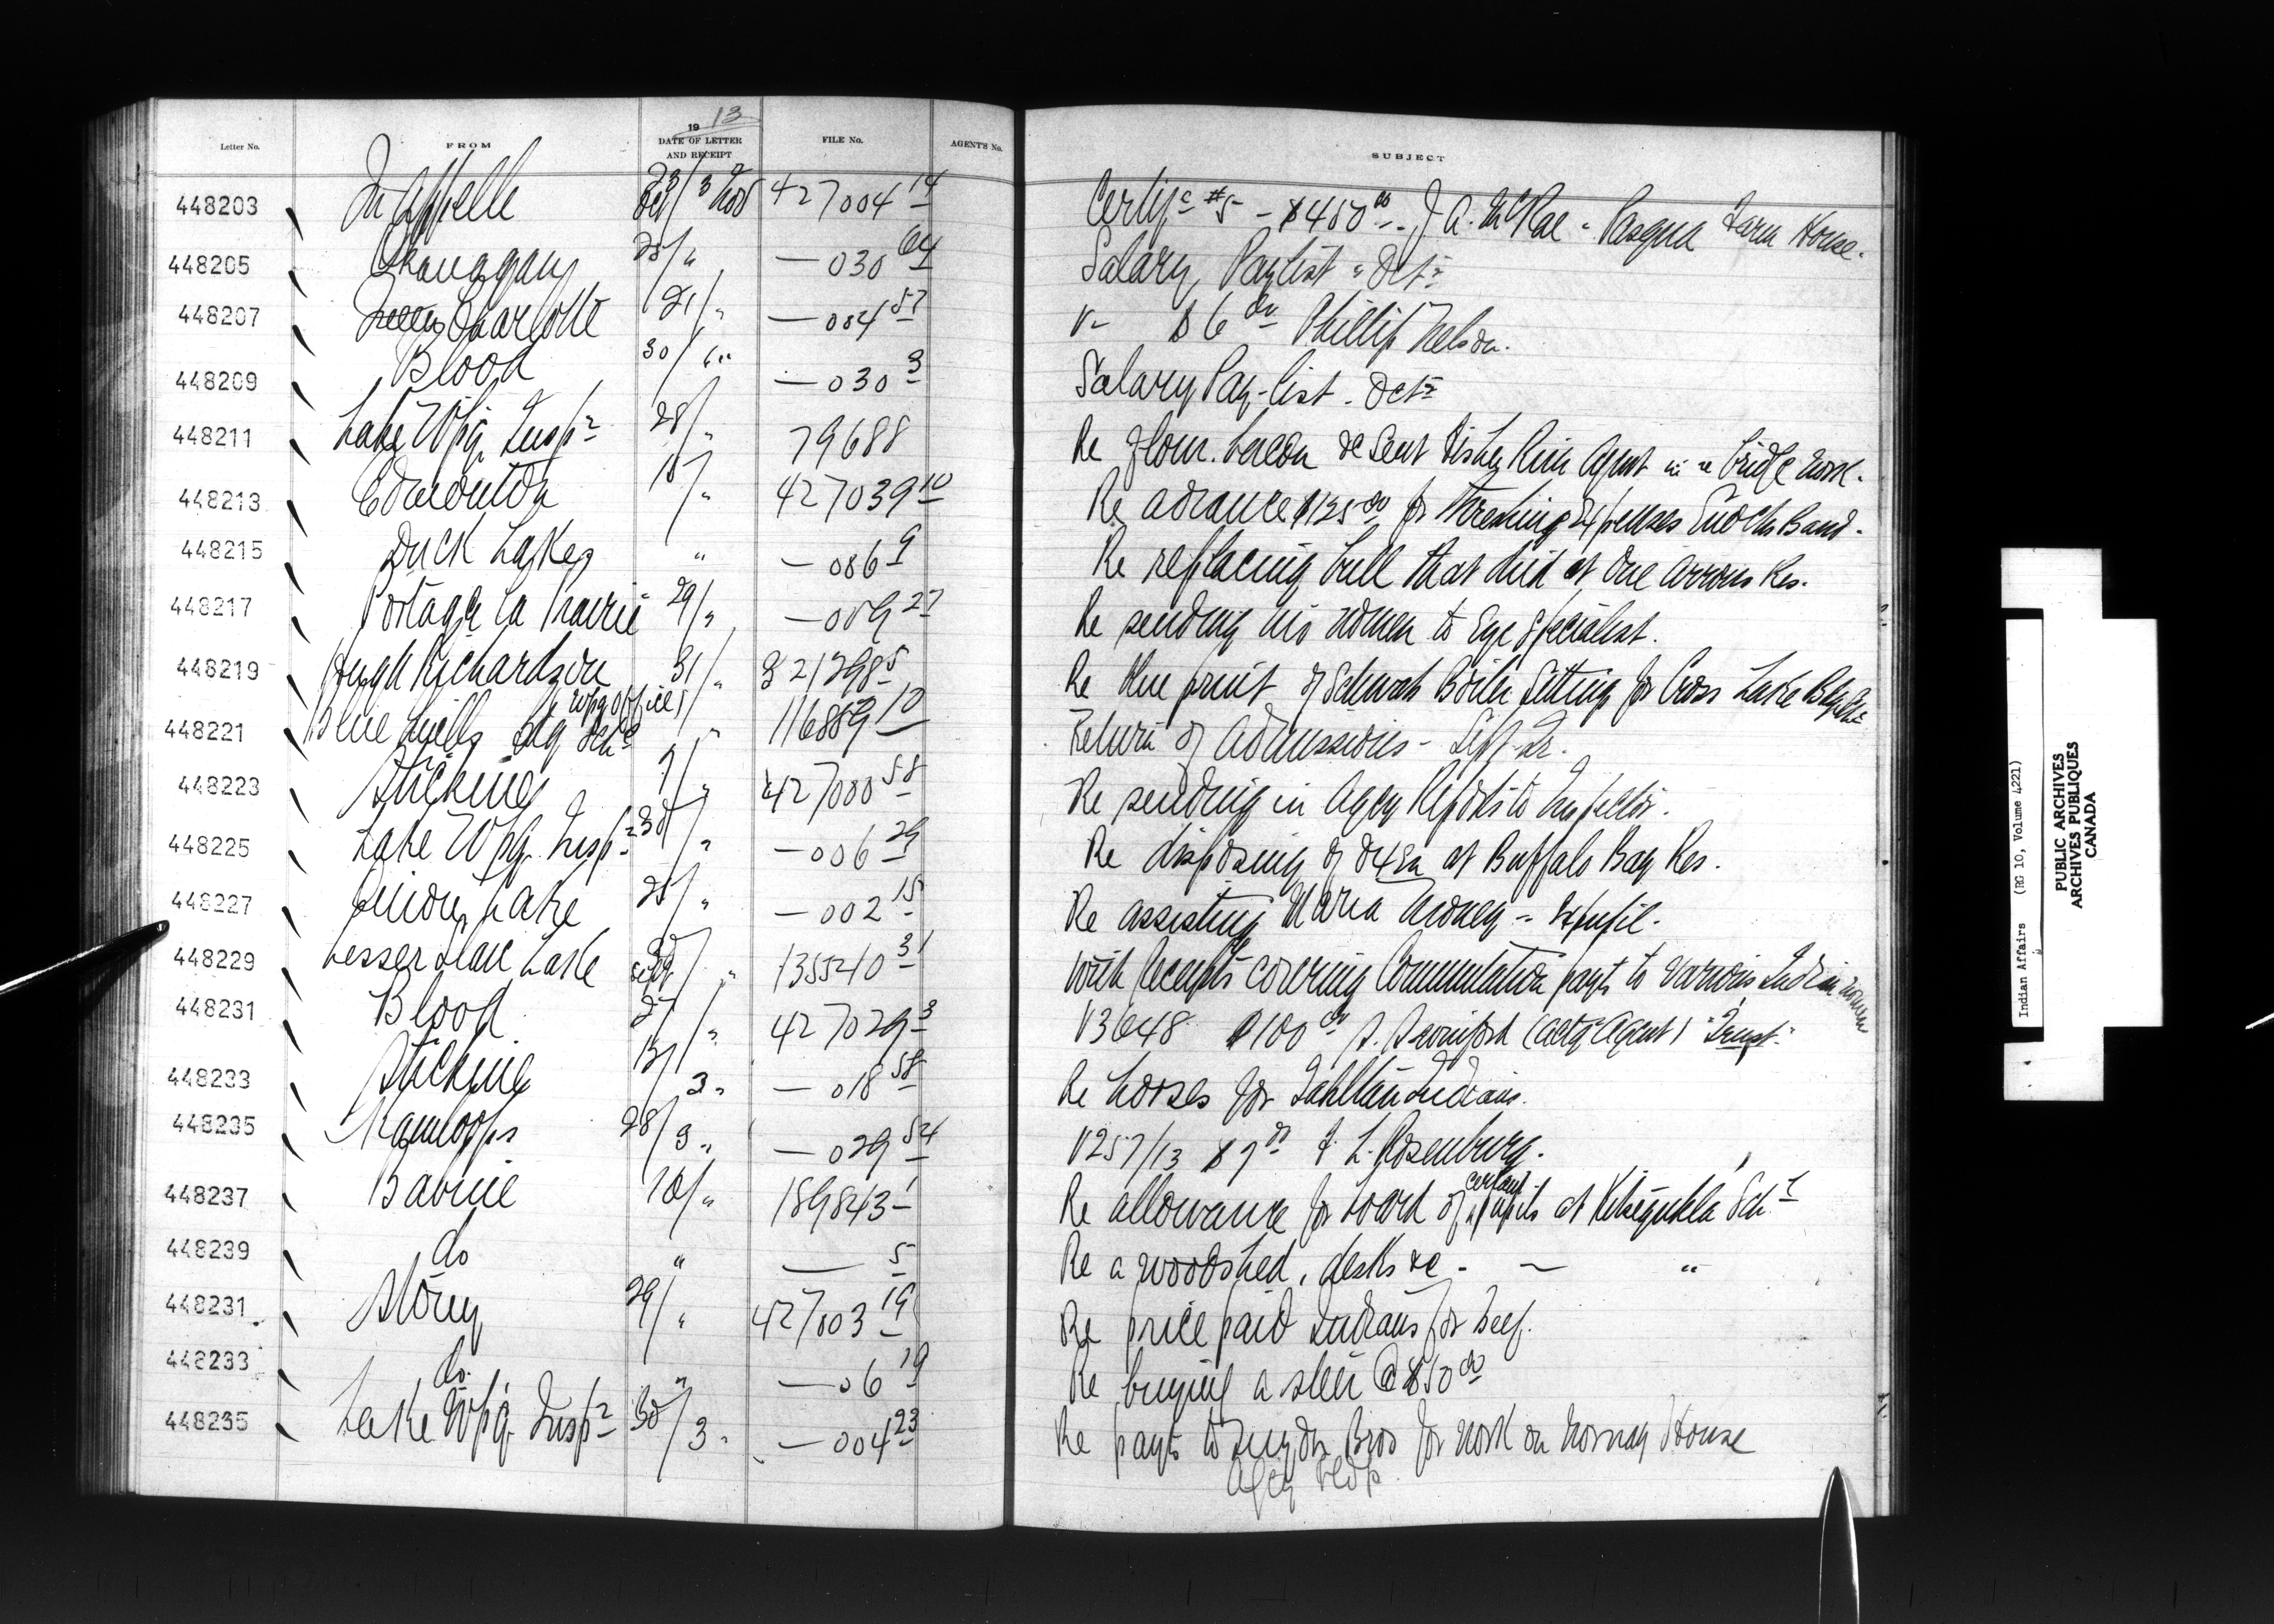 19 13
Letter No. FROM DATE OF LETTER AND RECEIPT FILE No. AGENT'S No. SUBJECT
448203 Qu'Appelle 23/Oct 3 Nov 427004 14 Certifc #5 - $450 00 - J. A. McRae - Pasqua Farm House.
448205 Okanagan 25/ " — 030 64 Salary Paylist - Oct
448207 Queen Charlotte 21/ " — 004 57 V- $6 00 Phillip Nelson.
448209 Blood 30/ " — 030 3 Salary Pay-list - Oct
448211 Lake Wpg. Insp 28/ " 79688 Re flour. bacon &c sent Fisher River Agent in re bridge work.
448213 Edmonton 18/ " 427039 10 Re advance $125 00 for threshing Expenses Enochs Band.
448215 Duck Lake " — 086 9 Re replacing bull that died at One Arrows Res.
448217 Portage la Prairie 29/ " — 009 27 Re sending two women to Eye Specialist.
448219 Hugh Richardson (Wpg Office) 31/ " 321298 5 Re blue print of Schwab Boiler Setting for Cross Lake Bdg Sch
448221 Blue Quills Bdg Sch " 116889 10 Return of Admissions - Sept Qr.
448223 Stickine 7/ " 427000 58 Re sending in Agcy Reports to Inspector.
448225 Lake Wpg. Insp 30/ " — 006 29 Re disposing of oxen at Buffalo Bay Res.
448227 Onion Lake 25/ " — 002 15 Re assisting Maria - Ex pupil.
448229 Lesser Slave Lake Sept " 135540 31 With receipts covering Commutation payts to various Indian women
448231 Blood 27/ " 427029 3 V3648 $100 00 (actg Agent) "Trust"
448233 Stickine 13/ 3 " — 018 58 Re horses for Tahltan Indians.
448235 Kamloops 28/ 3 " — 029 54 V257/13 $7 00 F. L. Rosenburg.
448237 Babine 18/ " 189843 1 Re allowance for board of certain pupils at Kitsegukla Sch
448239 do " — 5 Re a woodshed, desks &c - — "
448231 Stony 29/ " 427003 19 Re price paid Indians for beef.
448233 do. " — 06 19 Re buying a steer @ $50 00
448235 Lake Wpg. Insp 30/ 3 " — 004 23 Re payts to Bros for work on Norway House
Agcy bldgs.
Indian Affairs (RG 10, Volume 4221)
PUBLIC ARCHIVES
ARCHIVES PUBLIQUES
CANADA